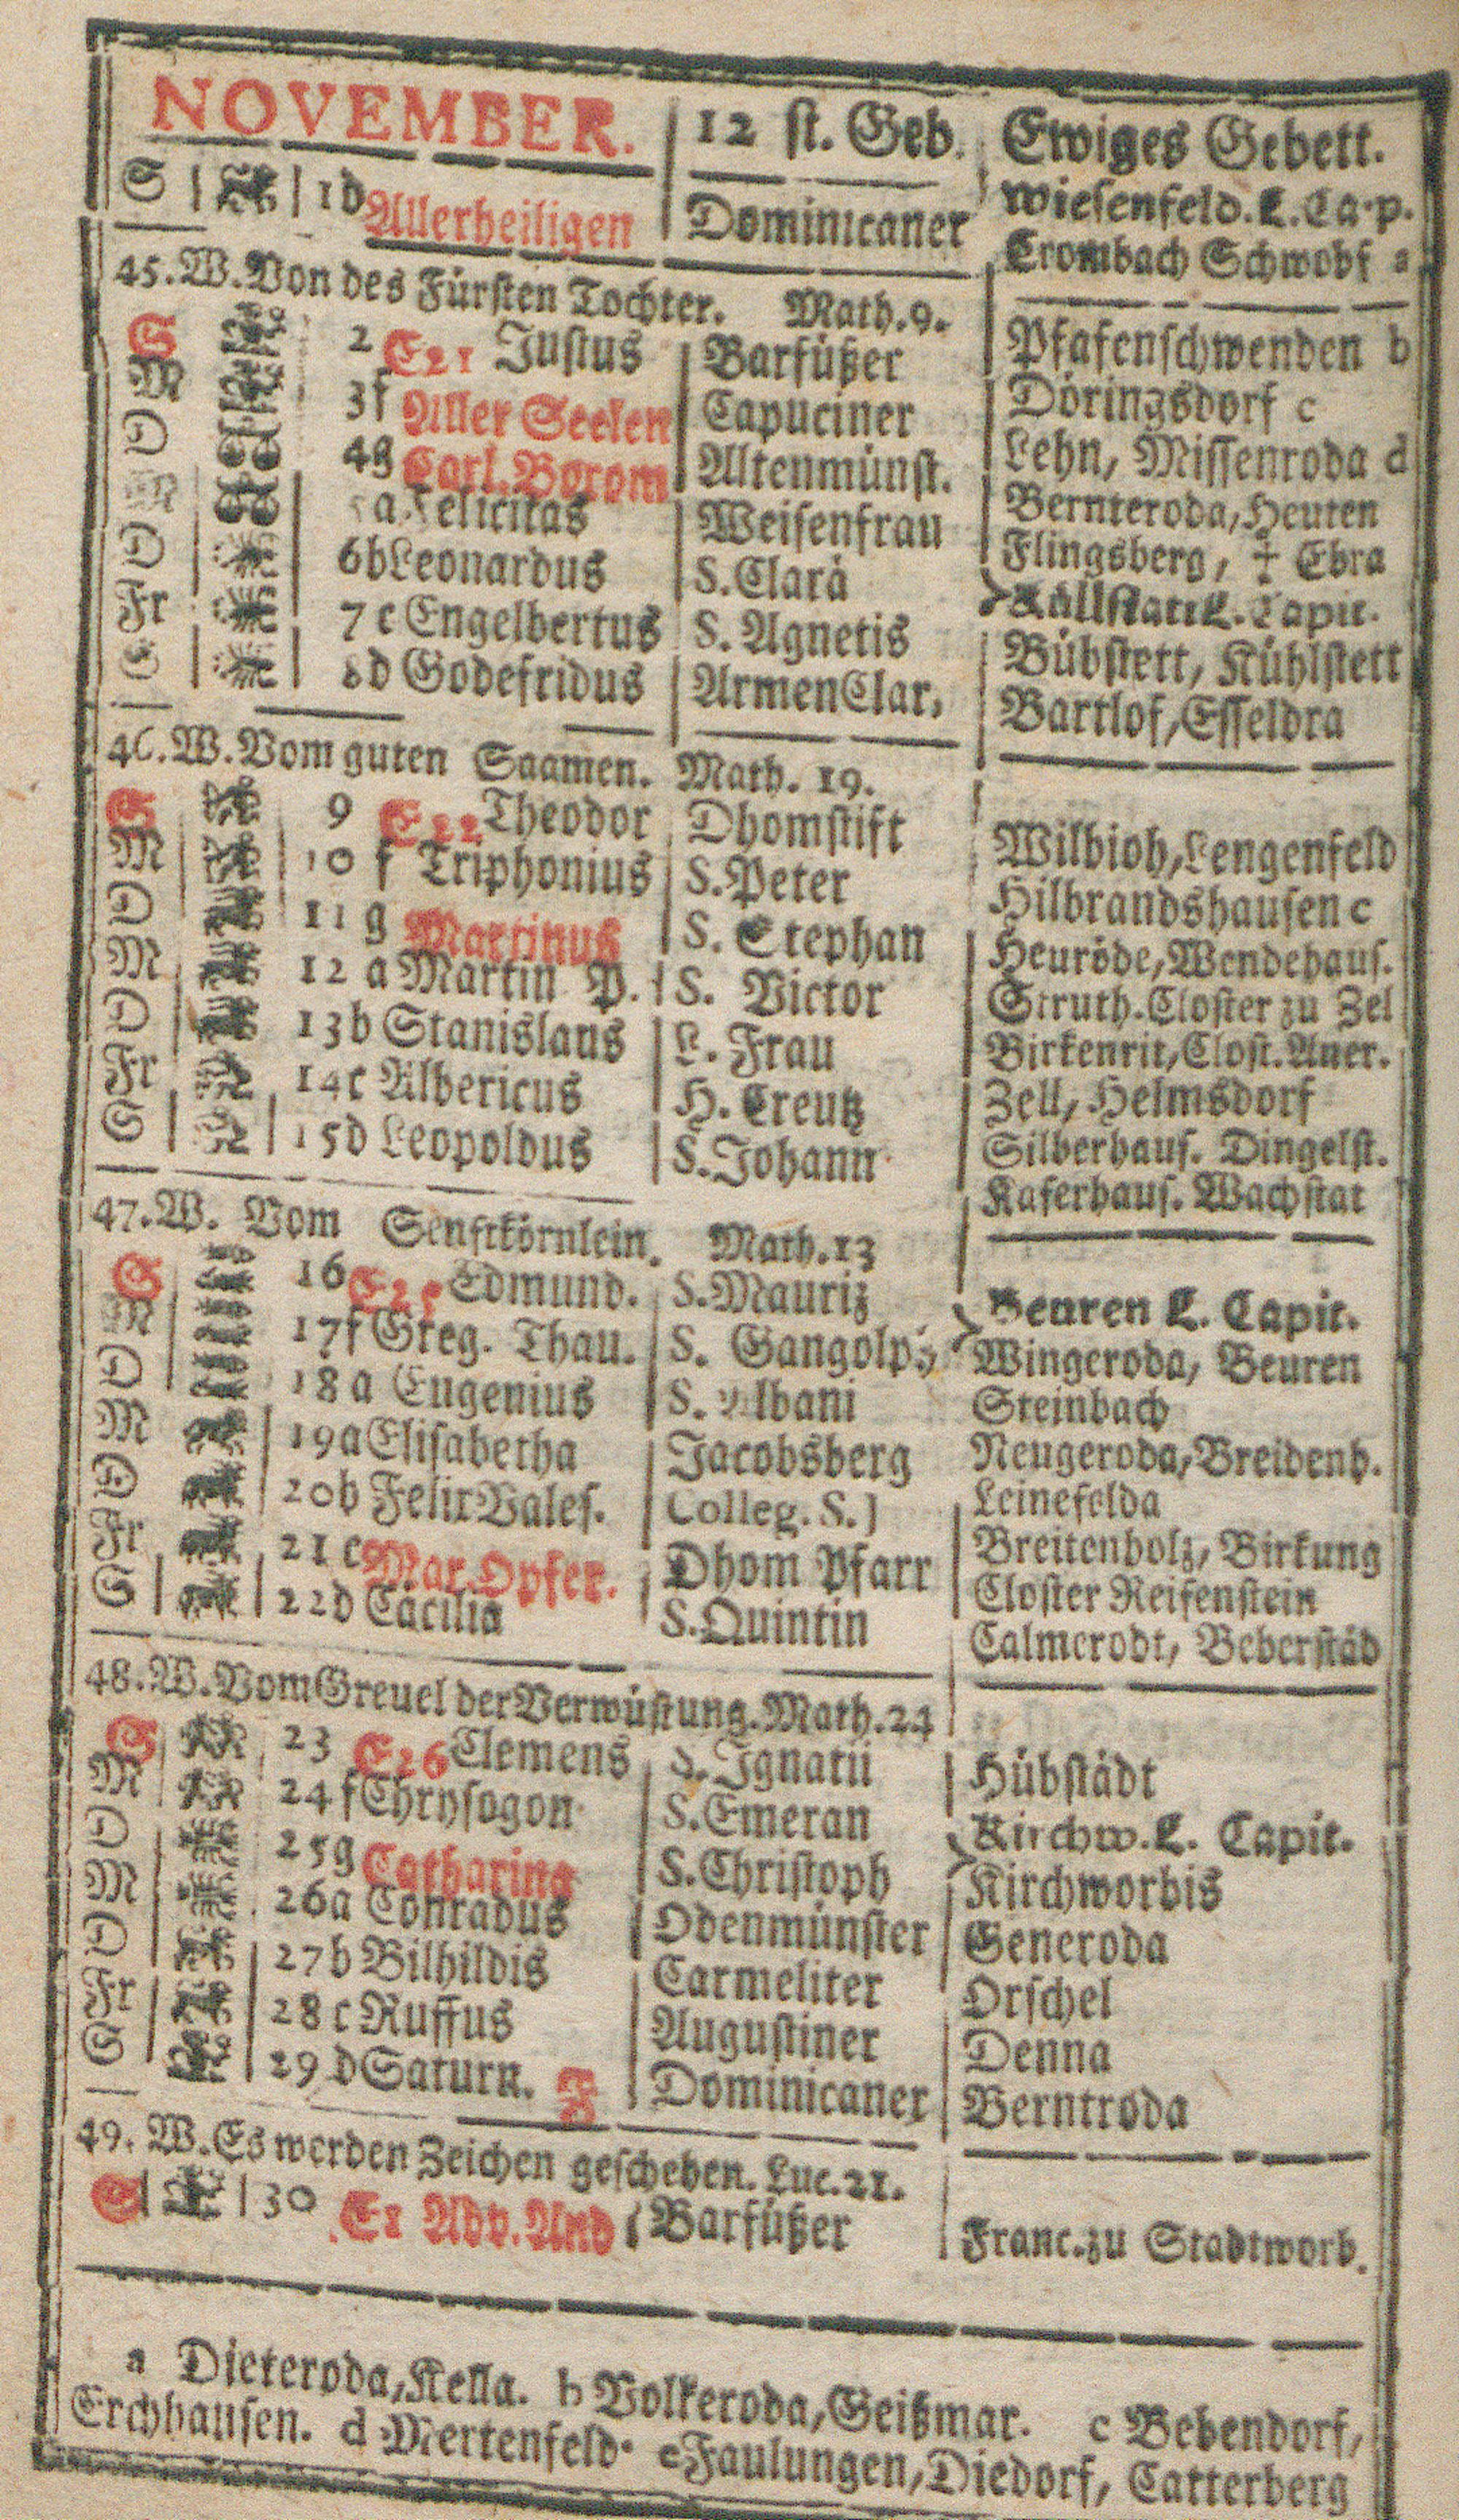 NOVEMBER. 12 st. Geb. Ewiges Gebett.
S 1 d Allerheiligen Dominicaner Wiesenfeld. L. Cap.
Crombach Schwobf a
45. W. Von des Fürsten Tochter. Math. 9.
S 2 E21 Justus Barfüßer Pfafenschwenden b
M 3 f Aller Seelen Capuciner Döringsdorf c
D 4 g Carl. Borom Altenmünst. Lehn, Missenroda d
M 5 a Felicitas Weisenfrau Bernteroda, Heuten
D 6 b Leonardus S. Clarä Flingsberg, ‡ Ebra
Fr 7 c Engelbertus S. Agnetis Källstatt L. Capit.
S 8 d Godefridus Armen Clar, Bübstett, Kühlstett
Bartlof, Esseldra
46. W. Vom guten Saamen. Math. 19.
S 9 E22 Theodor Dhomstift Wilbich, Lengenfeld
M 10 f Triphonius S. Peter Hilbrandshausen c
D 11 g Martinus S. Stephan Heuröde, Wendehaus.
M 12 a Martin P. S. Victor Struth. Closter zu Zel
D 13 b Stanislaus L. Frau Birkenrit, Clost. Aner.
Fr 14 c Albericus H. Creutz Zell, Helmsdorf
S 15 d Leopoldus S. Johann Silberhaus. Dingelst.
Kaferhaus. Wachstat
47. W. Vom Senftkörnlein. Math. 13
S 16 E25 Edmund. S. Mauriz Beuren L. Capit.
M 17 f Greg. Thau. S. Gangolph Wingeroda, Beuren
D 18 a Eugenius S. Albani Steinbach
M 19 a Elisabetha Jacobsberg Neugeroda, Breidenh.
D 20 b Felix Vales. Colleg. S. J Leinefelda
Fr 21 c Mar. Opfer. Dhom Pfarr Breitenholz, Birkung
S 22 d Cäcilia S. Quintin Closter Reifenstein
Calmerodt, Beberstäd
48. W. Vom Greuel der Verwüstung. Math. 24
S 23 E26 Clemens S. Ignatii Hübstädt
M 24 f Chrysogon S. Emeran Kirchw. L. Capit.
D 25 g Catharina S. Christoph Kirchworbis
M 26 a Conradus Odenmünster Generoda
D 27 b Bilhildis Carmeliter Orschel
Fr 28 c Ruffus Augustiner Denna
S 29 d Saturn. F Dominicaner Berntroda
49. W. Es werden Zeichen geschehen. Luc. 21.
S 30 E1 Adv. And Barfüßer Franc. zu Stadtworb.
a Dieteroda, Kella. b Volkeroda, Geißmar. c Bebendorf,
Erchhausen. d Mertenfeld. e Faulungen, Diedorf, Catterberg